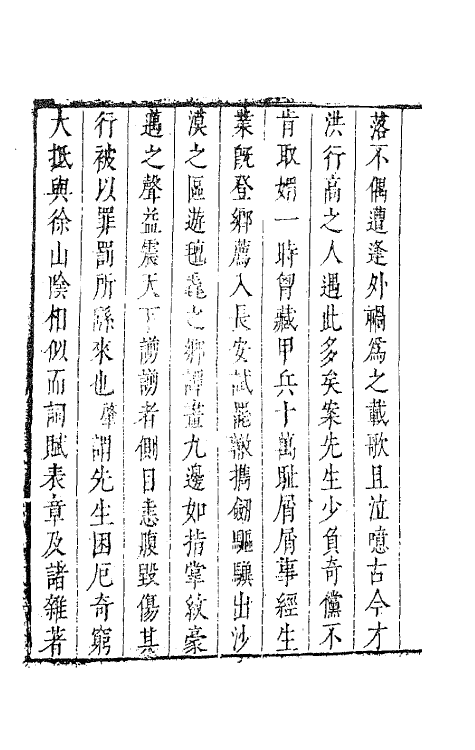 落不偶遭逢外禍爲之載歌且泣噫古今才
洪行高之人遇此多矣案先生少負奇儻不
肯取媚一時胷藏甲兵十萬耻屑屑事經生
業旣登鄉薦入長安試罷輙擕劒驅騾出沙
漠之區遊氊毳之鄉譚畫九邊如指掌紋豪
邁之聲益震天下謭謭者側目恚腹毀傷其
行被以罪罰所繇來也肇謂先生困厄奇窮
大抵與徐山陰相似而詞賦表章及諸雜著